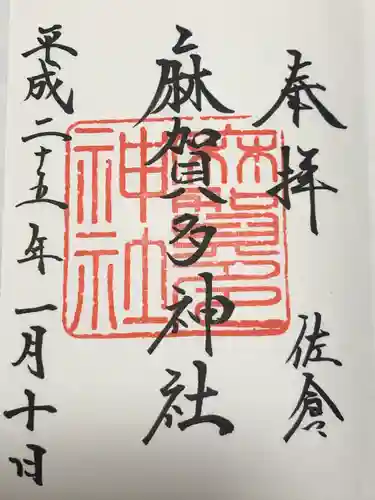 奉拝 佐倉
麻賀多神社
平成二十五年一月十日
麻賀多神社